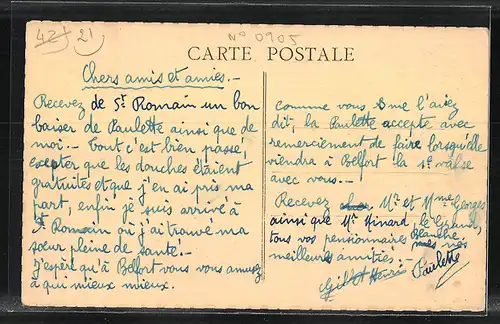 42 21
N° 0905
CARTE POSTALE
Chers amis et amies.-
Recevez de St Romain un bon
baiser de Paulette ainsi que de
moi.- Tout c'est bien passé,
excepter que les douches étaient
gratuites et que j'en ai pris ma
part, enfin je suis arrivé à
St Romain où j'ai trouvé ma
sœur pleine de santé.-
J'espère qu'à Belfort vous vous amusez
à qui mieux mieux.
comme vous me l'aviez
dit, la Paulette accepte avec
remerciement de faire lorsqu'elle
viendra à Belfort la 1e valse
avec vous.-
Recevez Mr et Mme Georges
ainsi que Mr Hinard, le Grand,
tous vos pensionnaires Blanche mes nos
meilleures amitiés:-
Paulette